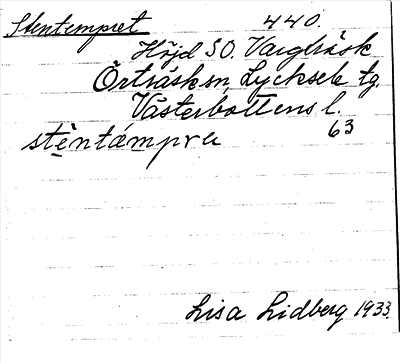 Stentempret 440.
Höjd SO. Vargträsk
Örträsk sn, Lycksele tg.
Västerbottens l.
stèntæmpra 63
Lisa Lidberg 1933.